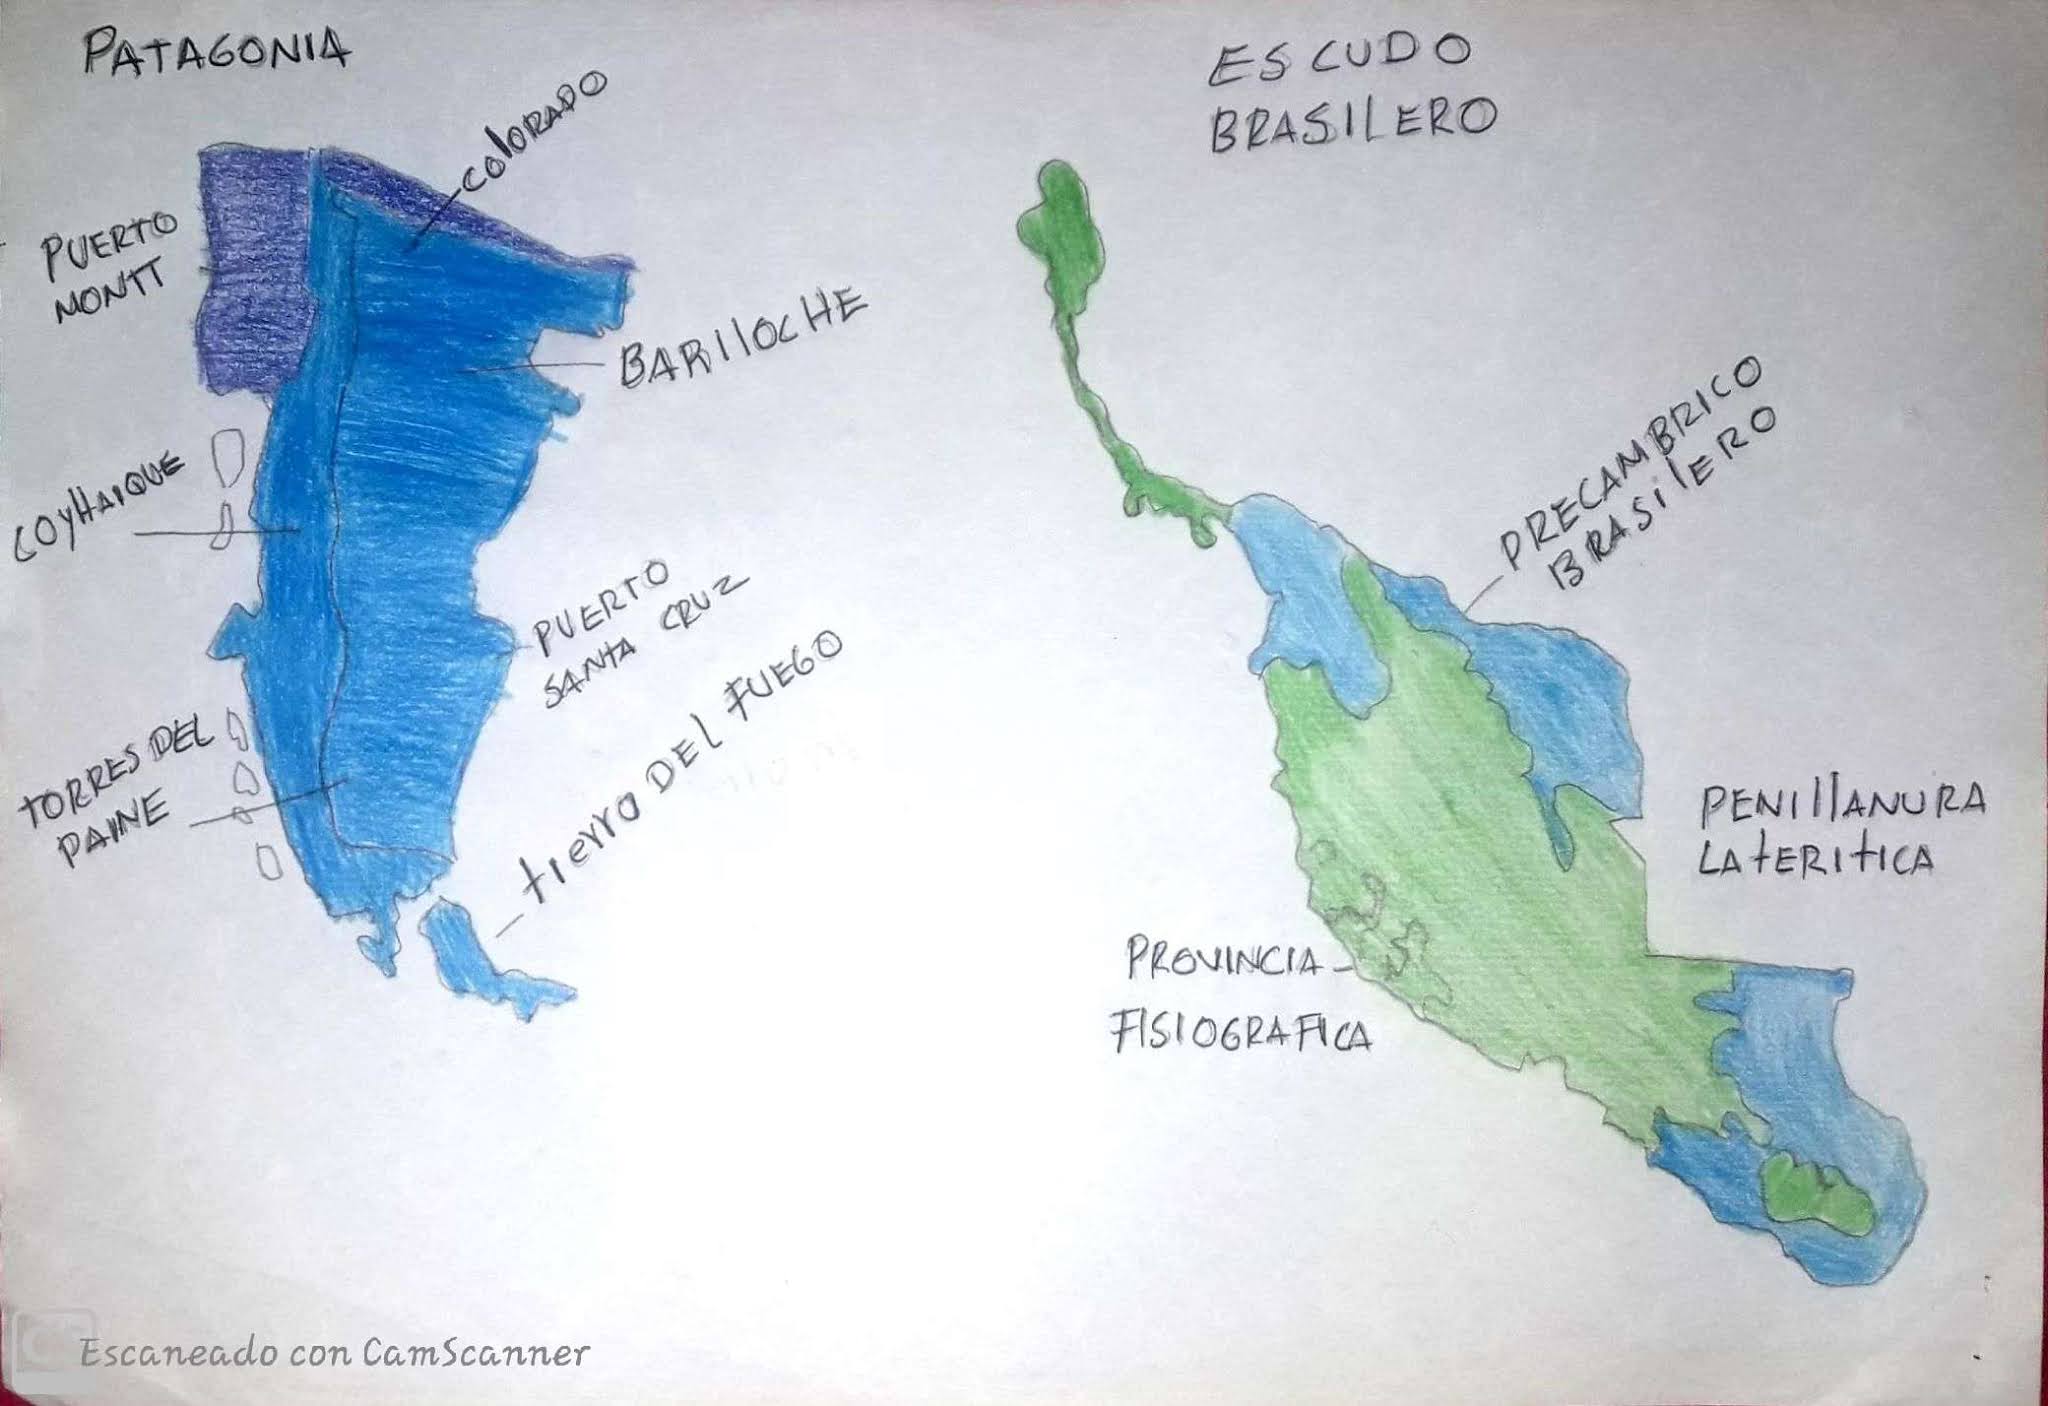 PATAGONIA
COLORADO
PUERTO
MONTT
BARILOCHE
COYHAIQUE
PUERTO
SANTA CRUZ
TORRES DEL
PAINE
tierro DEL FUEGO
ESCUDO
BRASILERO
PRECAMBRICO
BRASILERO
PENILLANURA
LATERITICA
PROVINCIA
FISIOGRAFICA
Escaneado con CamScanner